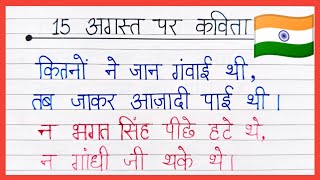 15 अगस्त पर कविता
कितनों ने जान गंवाई थी,
तब जाकर आजादी पाई थी।
न भगत सिंह पीछे हटे थे,
न गांधी जी थके थे।